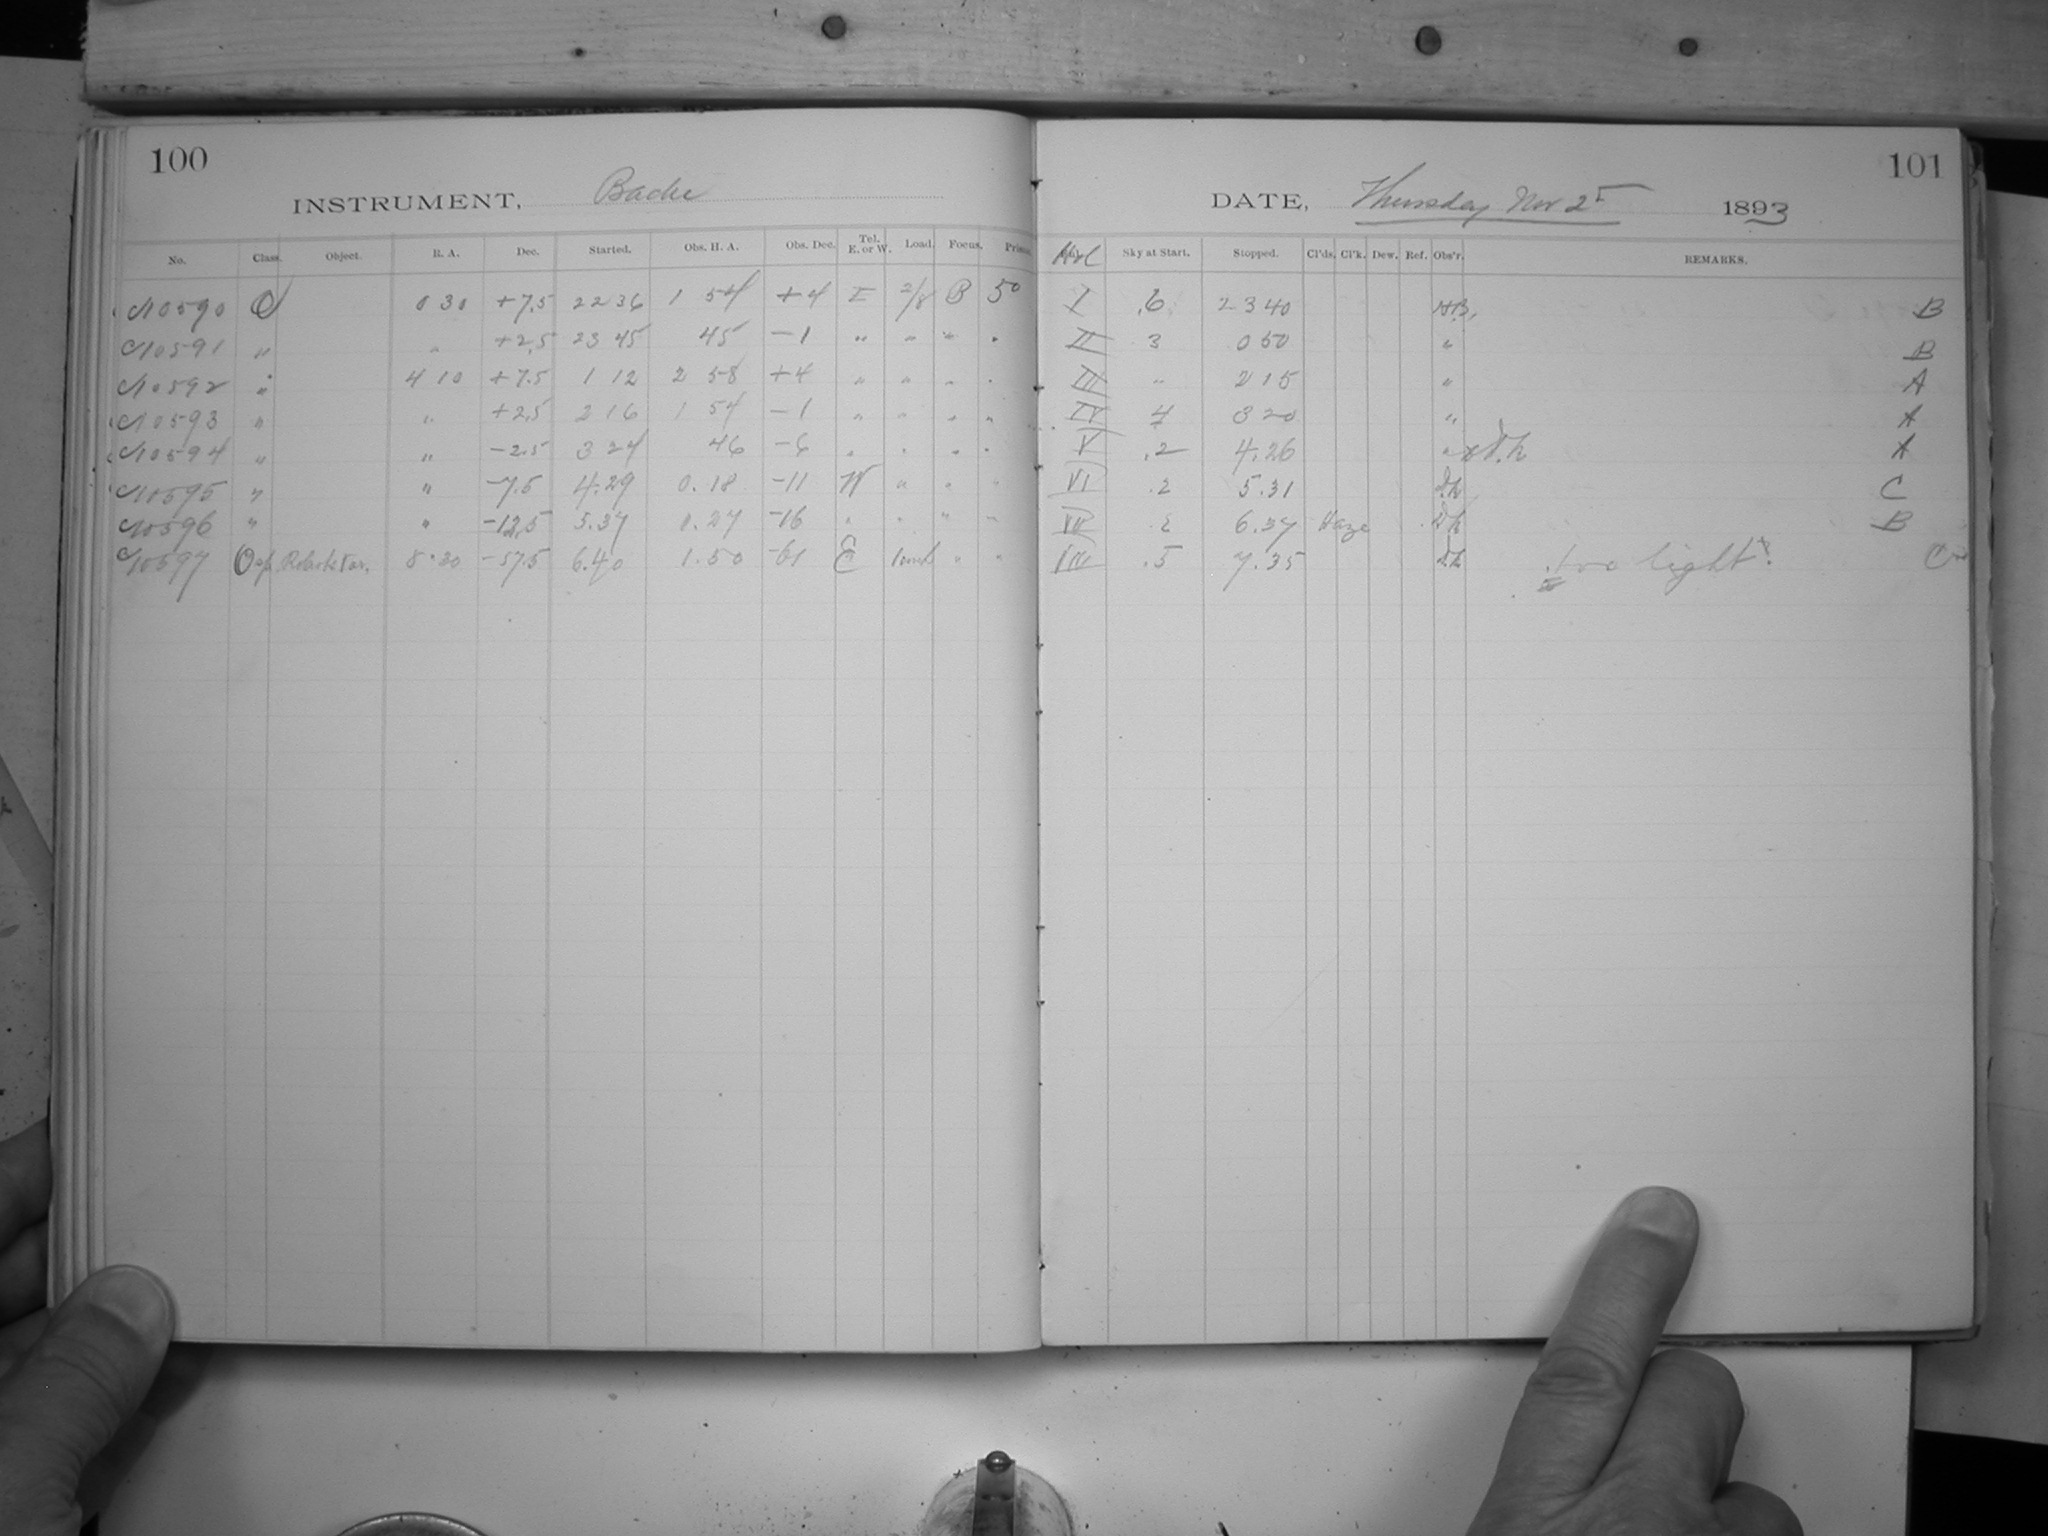 100
INSTRUMENT, Bache
No. Class. Object. R. A. Dec. Started. Obs. H. A. Obs. Dec. Tel. E. or W. Load. Focus. Prism.
10590 0 30 +7.5 22 36 1 54 +4 E 2/8 B 5°
10591 " " +2.5 23 45 45 -1 " " " "
10592 " 4 10 +7.5 1 12 2 58 +4 " " " "
10593 " " +2.5 2 16 1 54 -1 " " " "
10594 " " -2.5 3 24 46 -6 " " " "
10595 " " -7.5 4.29 0.18 -11 W " " "
10596 " " -12.5 5.37 1.27 -16 " " " "
10597 8.20 -57.5 6.40 1.50 -61 E " "
101
DATE, Thursday Nov 2 1893
Sky at Start. Stopped. Cl'ds. Cl'k. Dew. Ref. Obs'r. REMARKS.
I .6 23 40 B
II 3 0 50 " B
III " 2 15 " A
IV 4 3 20 " A
V .2 4.26 " A
VI .2 5.31 C
VII .2 6.37 Haze B
.5 7.35 too light? C